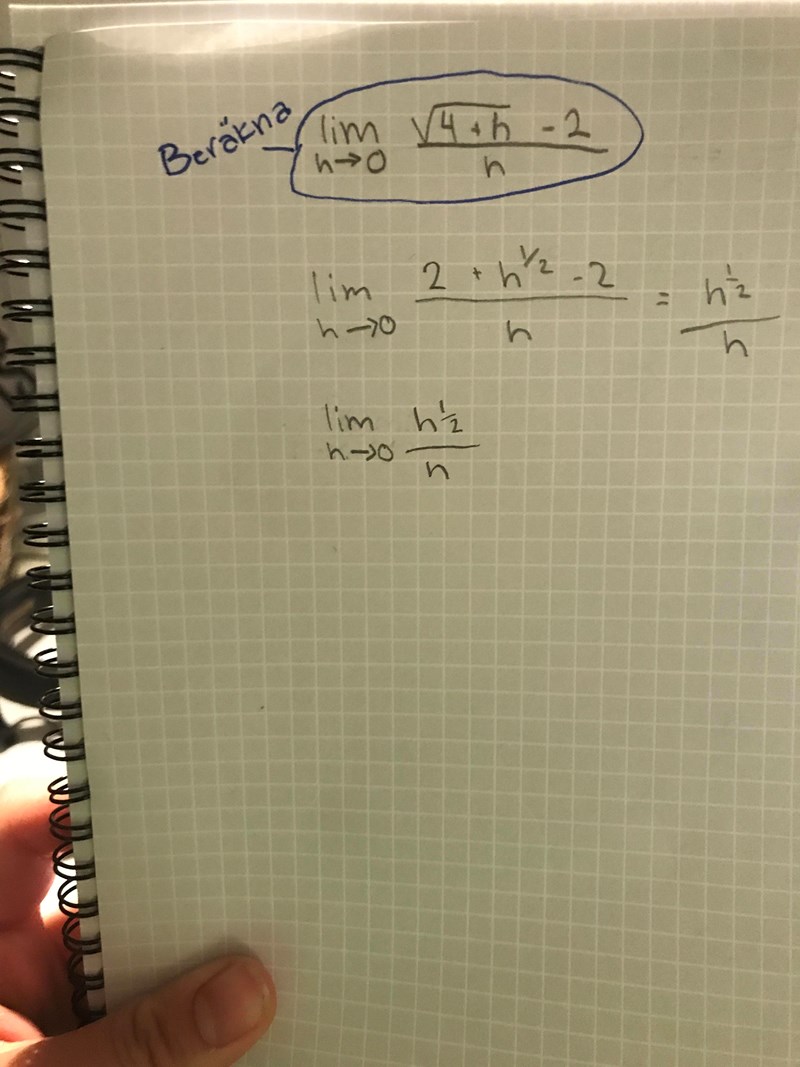 Beräkna lim h→0 √(4+h) - 2 / h
lim h→0 2 + h^1/2 - 2 / h = h^1/2 / h
lim h→0 h^1/2 / h